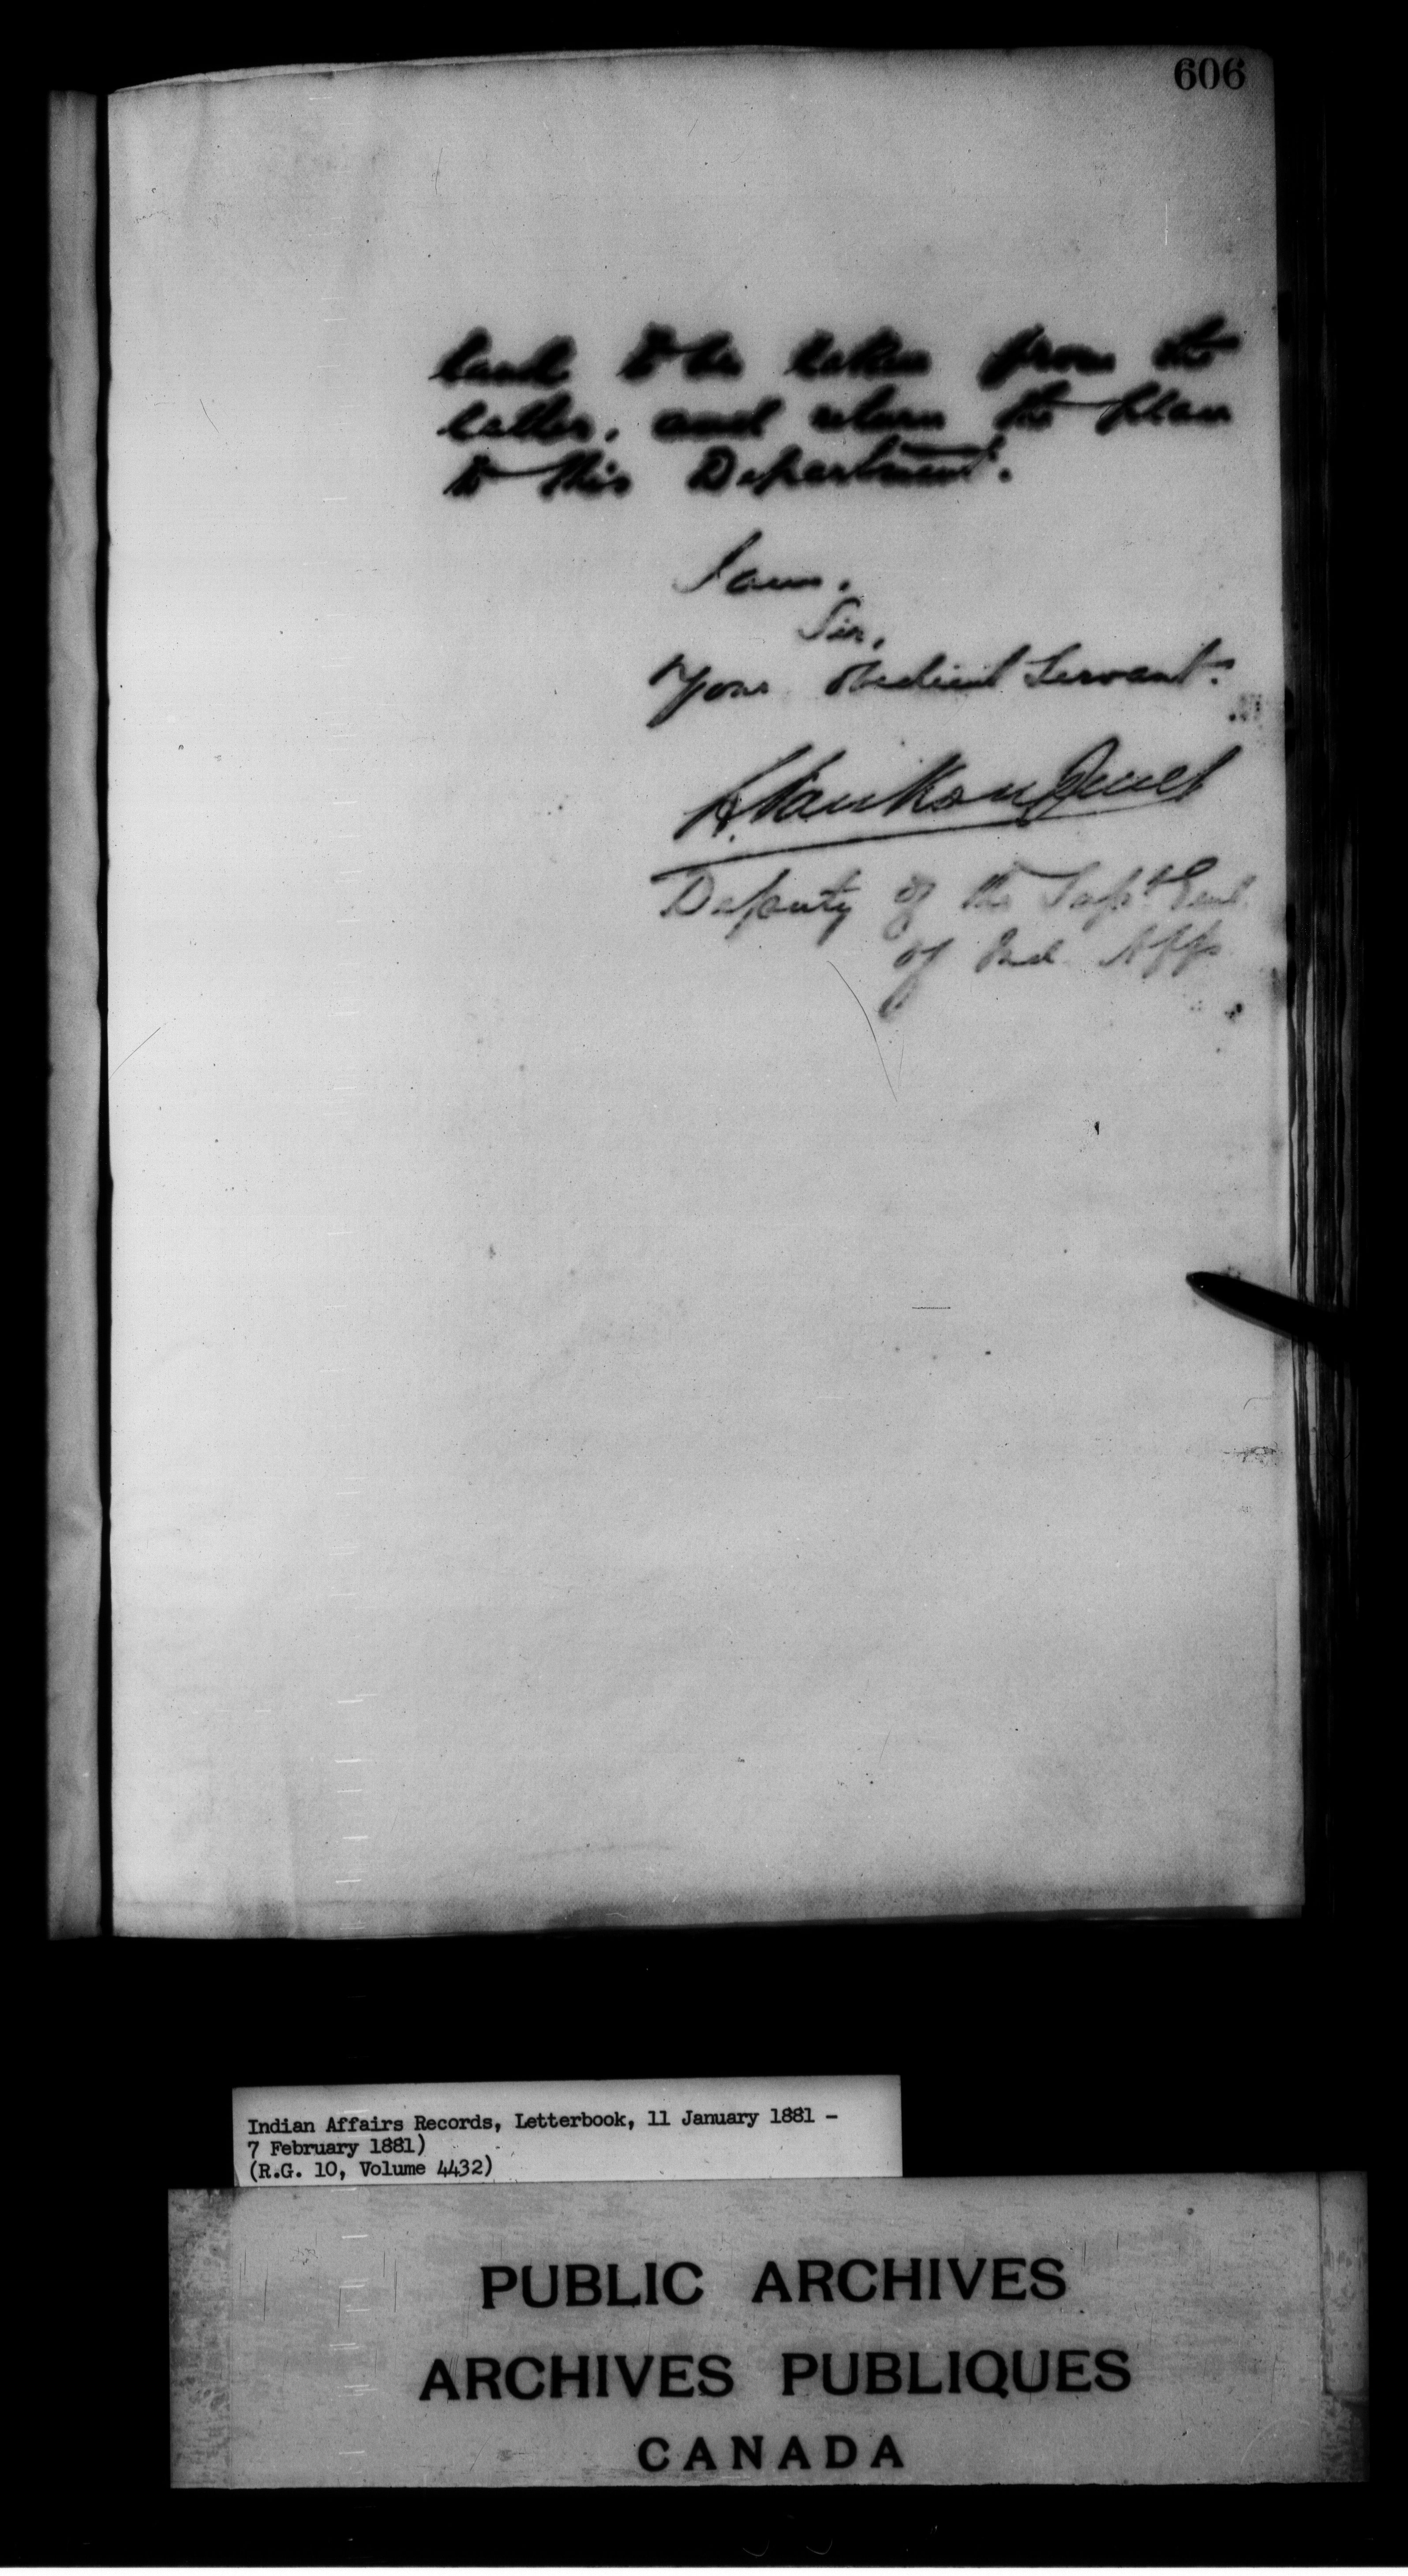 606
land to be taken from the
latter, and return the plan
to this Department.
I am,
Sir,
Your Obedient Servant.
L. VanKoughnet
Deputy of the Supt. Genl.
of Ind. Affs
Indian Affairs Records, Letterbook, 11 January 1881 -
7 February 1881)
(R.G. 10, Volume 4432)
PUBLIC ARCHIVES
ARCHIVES PUBLIQUES
CANADA